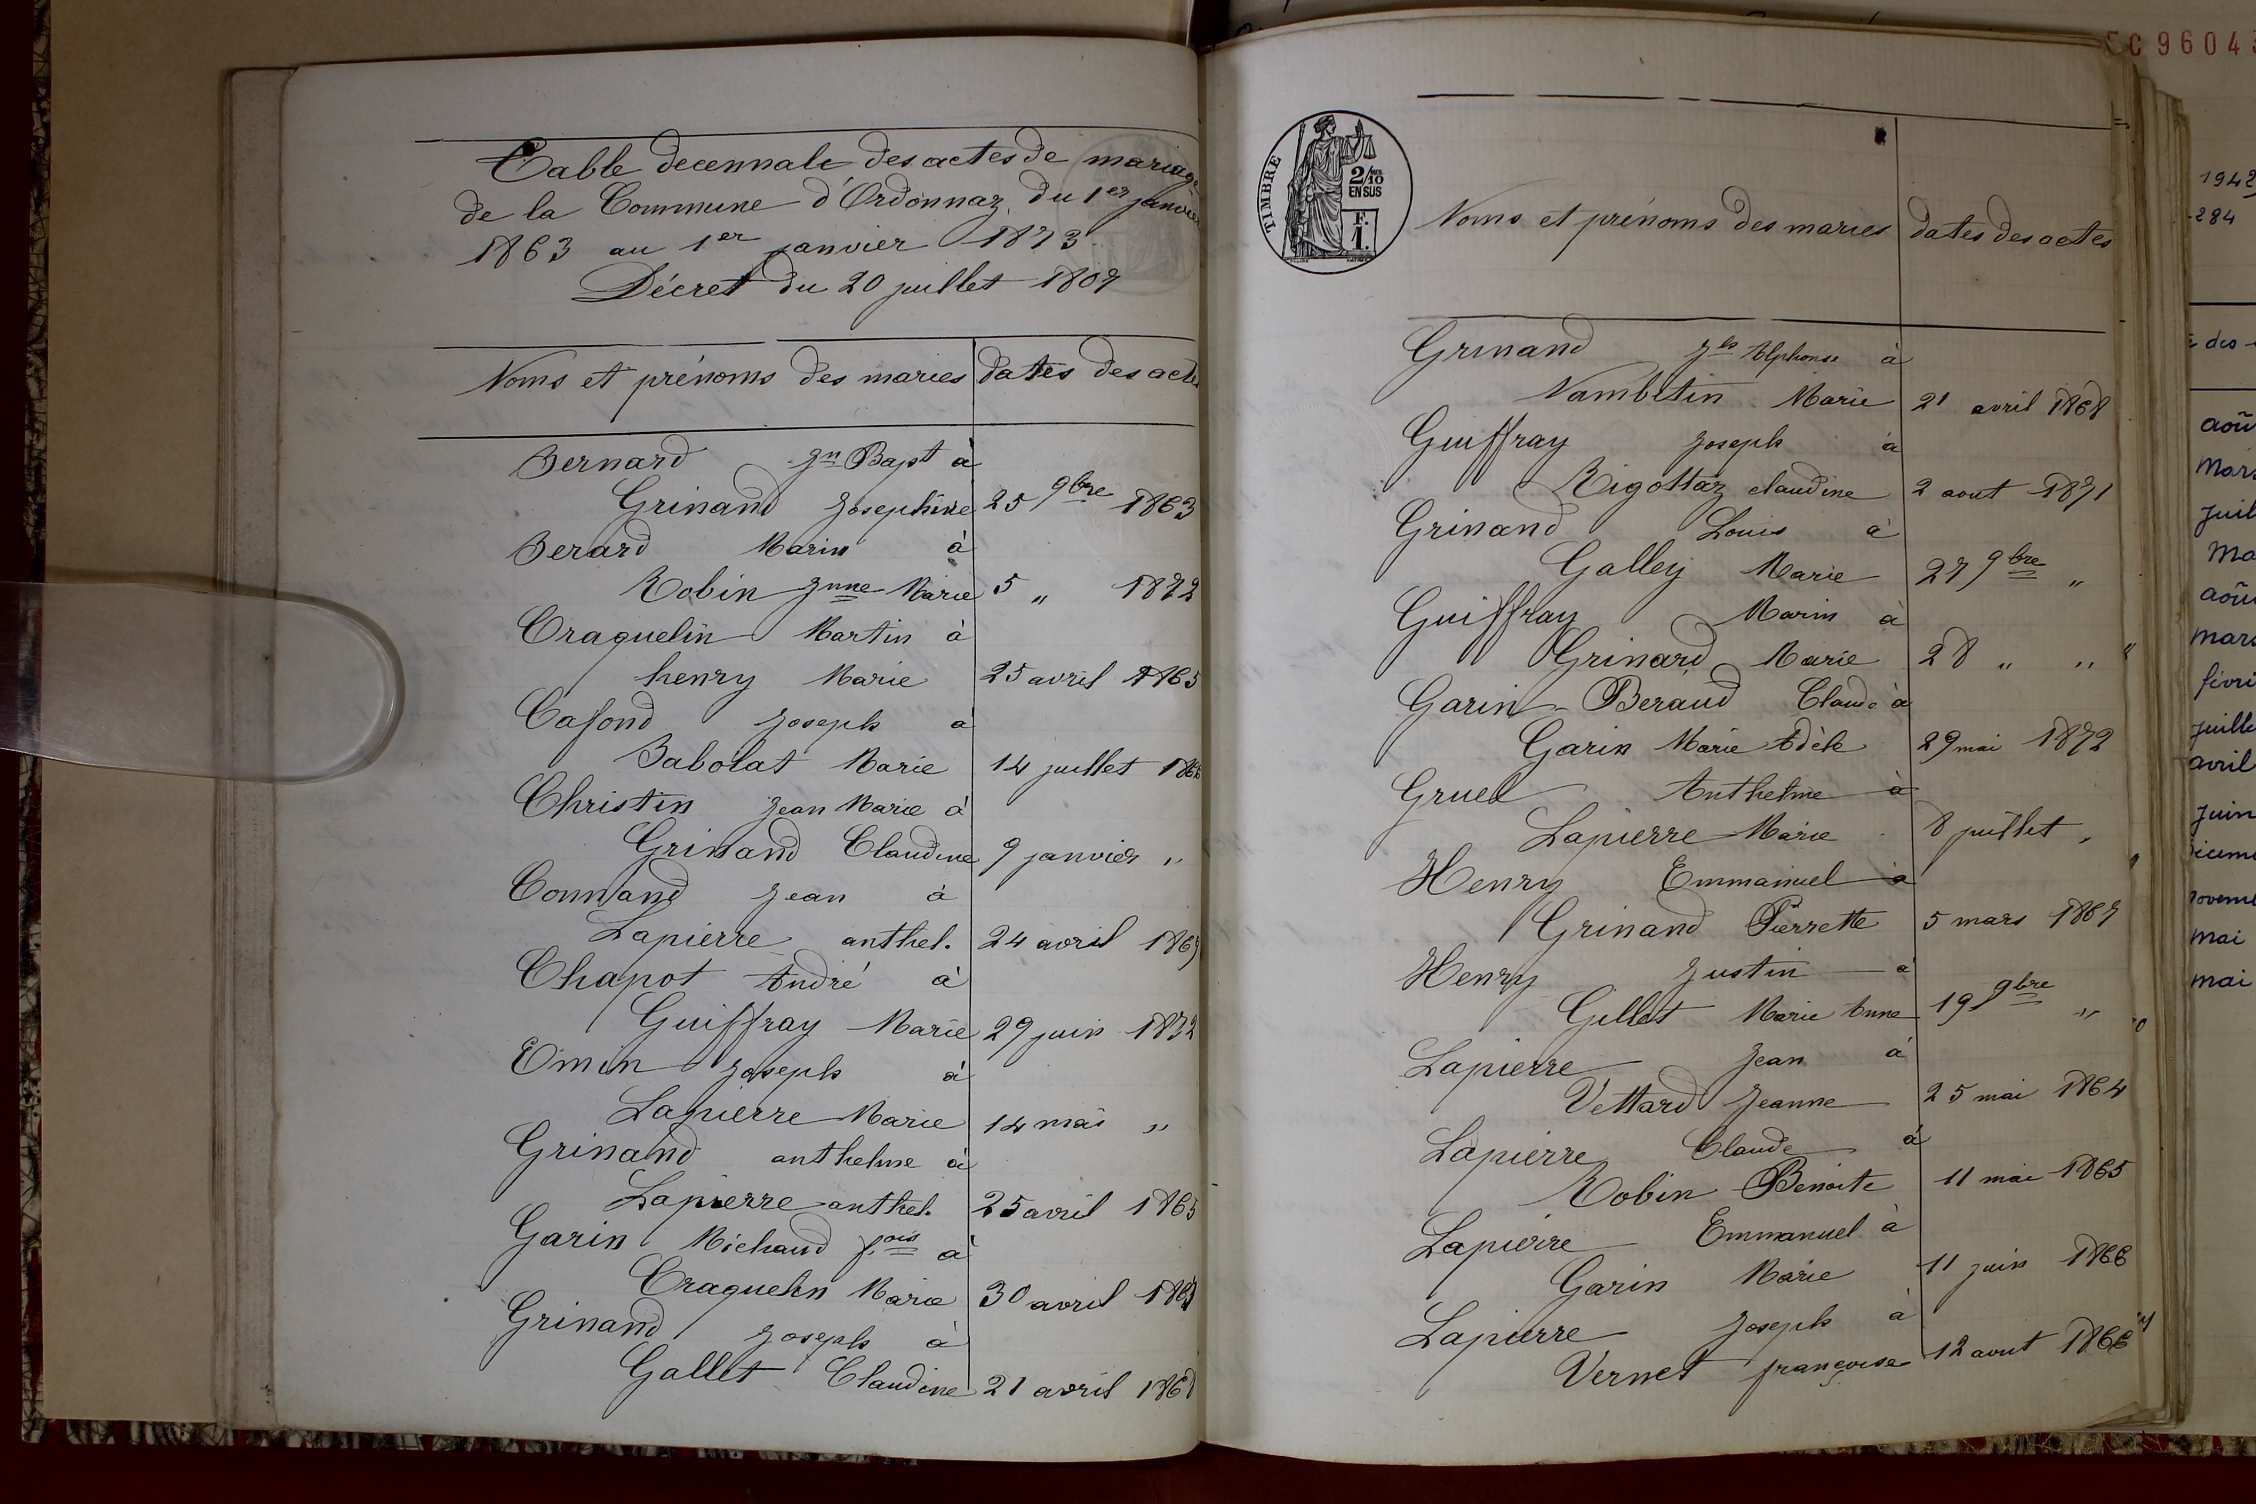 Table decennale des actes de mariage
de la Commune d'Ordonnaz du 1er janvier
1863 au 1er janvier 1873
Décret du 20 juillet 1807
Noms et prénoms des maries dates des actes
Bernard Jn Bapt à
Grinand Josephine 25 9bre 1863
Berard Marin à
Robin Jnne Marie 5 " 1872
Craquelin Martin à
henry Marie 25 avril 1865
Cafond Joseph à
Babolat Marie 14 juillet
Christin Jean Marie à
Grinand Claudine 9 janvier "
Connand Jean à
Lapierre anthel. 24 avril
Chapot André à
Guiffray Marie 29 juin 1872
Emin Joseph à
Lapierre Marie 14 mai "
Grinand anthelme à
Lapierre anthel. 25 avril 1865
Garin Michaud fois à
Craquelin Marie 30 avril
Grinand Joseph à
Gallet Claudine 21 avril 1868
TIMBRE
2/10
EN SUS
F.
1.
Noms et prénoms des maries dates des actes
Grinand Alphonse à
Nambotin Marie 21 avril 1868
Guiffray Joseph à
Rigottaz claudine 2 aout 1871
Grinand Louis à
Galley Marie 27 9bre "
Guiffray Marin à
Grinard Marie 28 " "
Garin-Beraud Claude à
Garin Marie Adèle 29 mai 1872
Gruel Anthelme à
Lapierre Marie 8 juillet "
Henry Emmanuel à
Grinand Pierrette 5 mars 1867
Henry Justin à
Gillet Marie Anne 19 9bre "
Lapierre Jean à
Vettard Jeanne 25 mai 1864
Lapierre Claude à
Robin Benoite 11 mai 1865
Lapierre Emmanuel à
Garin Marie 11 juin 1866
Lapierre Joseph à
Vernet françoise 12 aout 1866
C 9604
1942
284
des
aoû
Mars
juil
Ma
aoû
mars
févri
juille
avril
juin
mai
mai